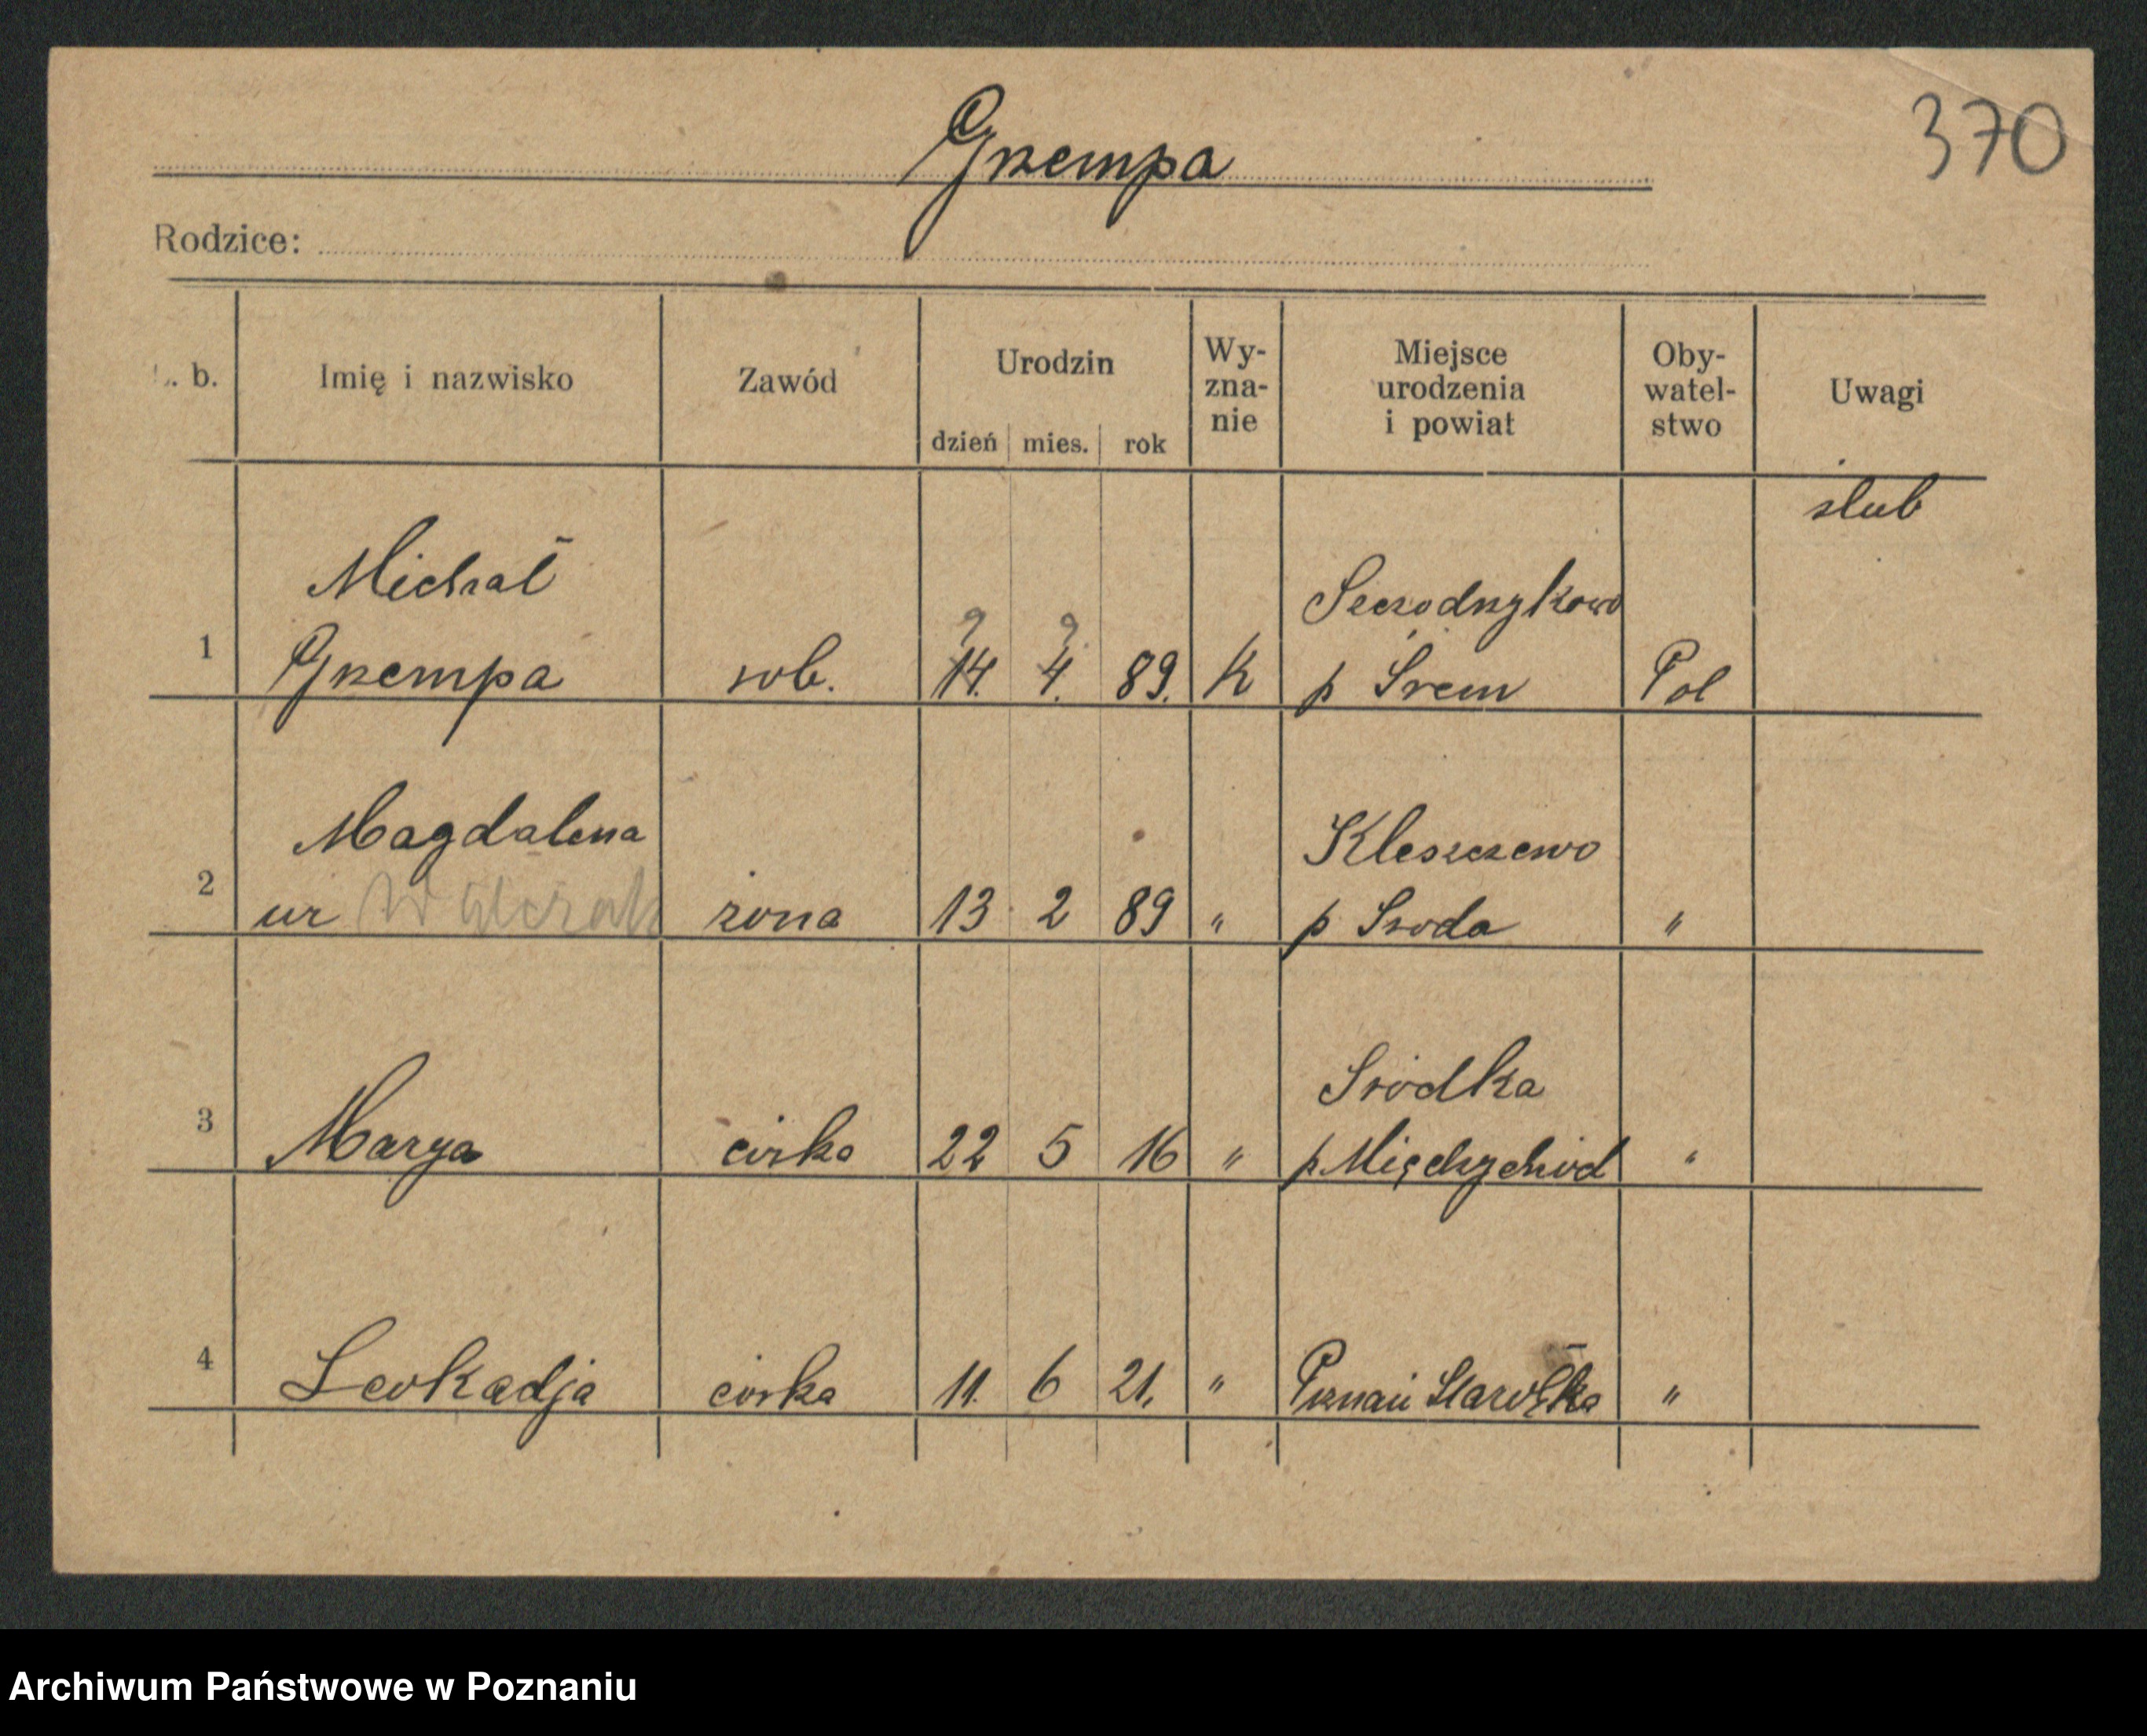 370
Grempa
Rodzice:
L. b. Imię i nazwisko Zawód Urodzin dzień mies. rok Wy-zna-nie Miejsce urodzenia i powiat Oby-watel-stwo Uwagi
ślub
Michał
9 9 
1 Grempa rob. 14. 4. 89. K p Śrem Pol
Magdalena Kleszczewo
2 ur Walczak żona 13 2 89 " p Środa "
Śródka
3 Marya córka 22 5 16 " p Międzychód "
4 Leokadja córka 11. 6 21. " Poznań Starołęka "
Archiwum Państwowe w Poznaniu